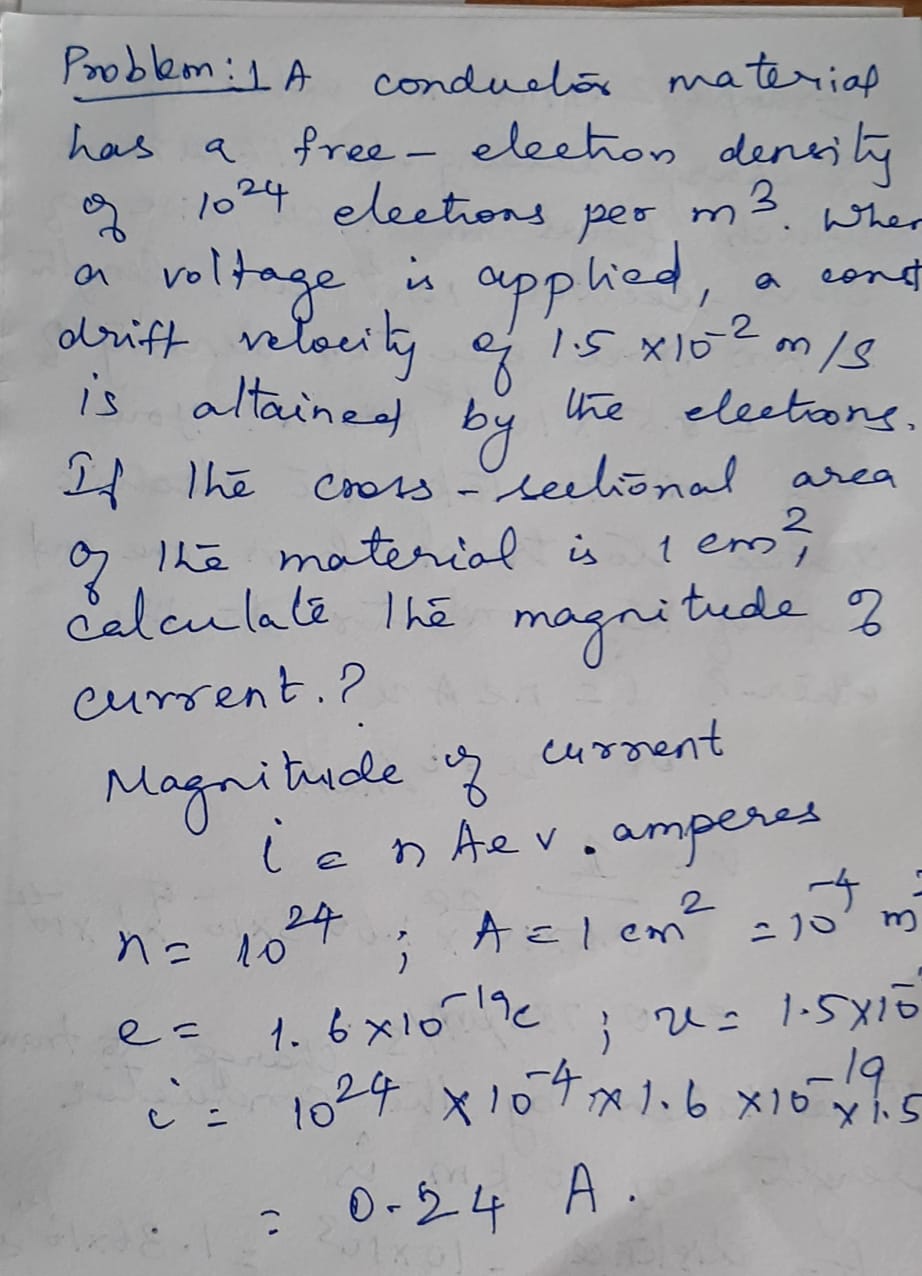 Problem:1 A conductor material
has a free-electron density
of 10²⁴ electrons per m³. When
a voltage is applied, a const
drift velocity of 1.5 x10⁻² m/s
is attained by the electrons.
If the cross-sectional area
of the material is 1 cm²,
calculate the magnitude of
current.?
Magnitude of current
i = n A e v . amperes
n = 10²⁴ ; A = 1 cm² = 10⁻⁴ m
e = 1.6 x10⁻¹⁹c ; v = 1.5x10⁻
i = 10²⁴ x 10⁻⁴ x 1.6 x10⁻¹⁹ x 1.5
= 0.24 A.